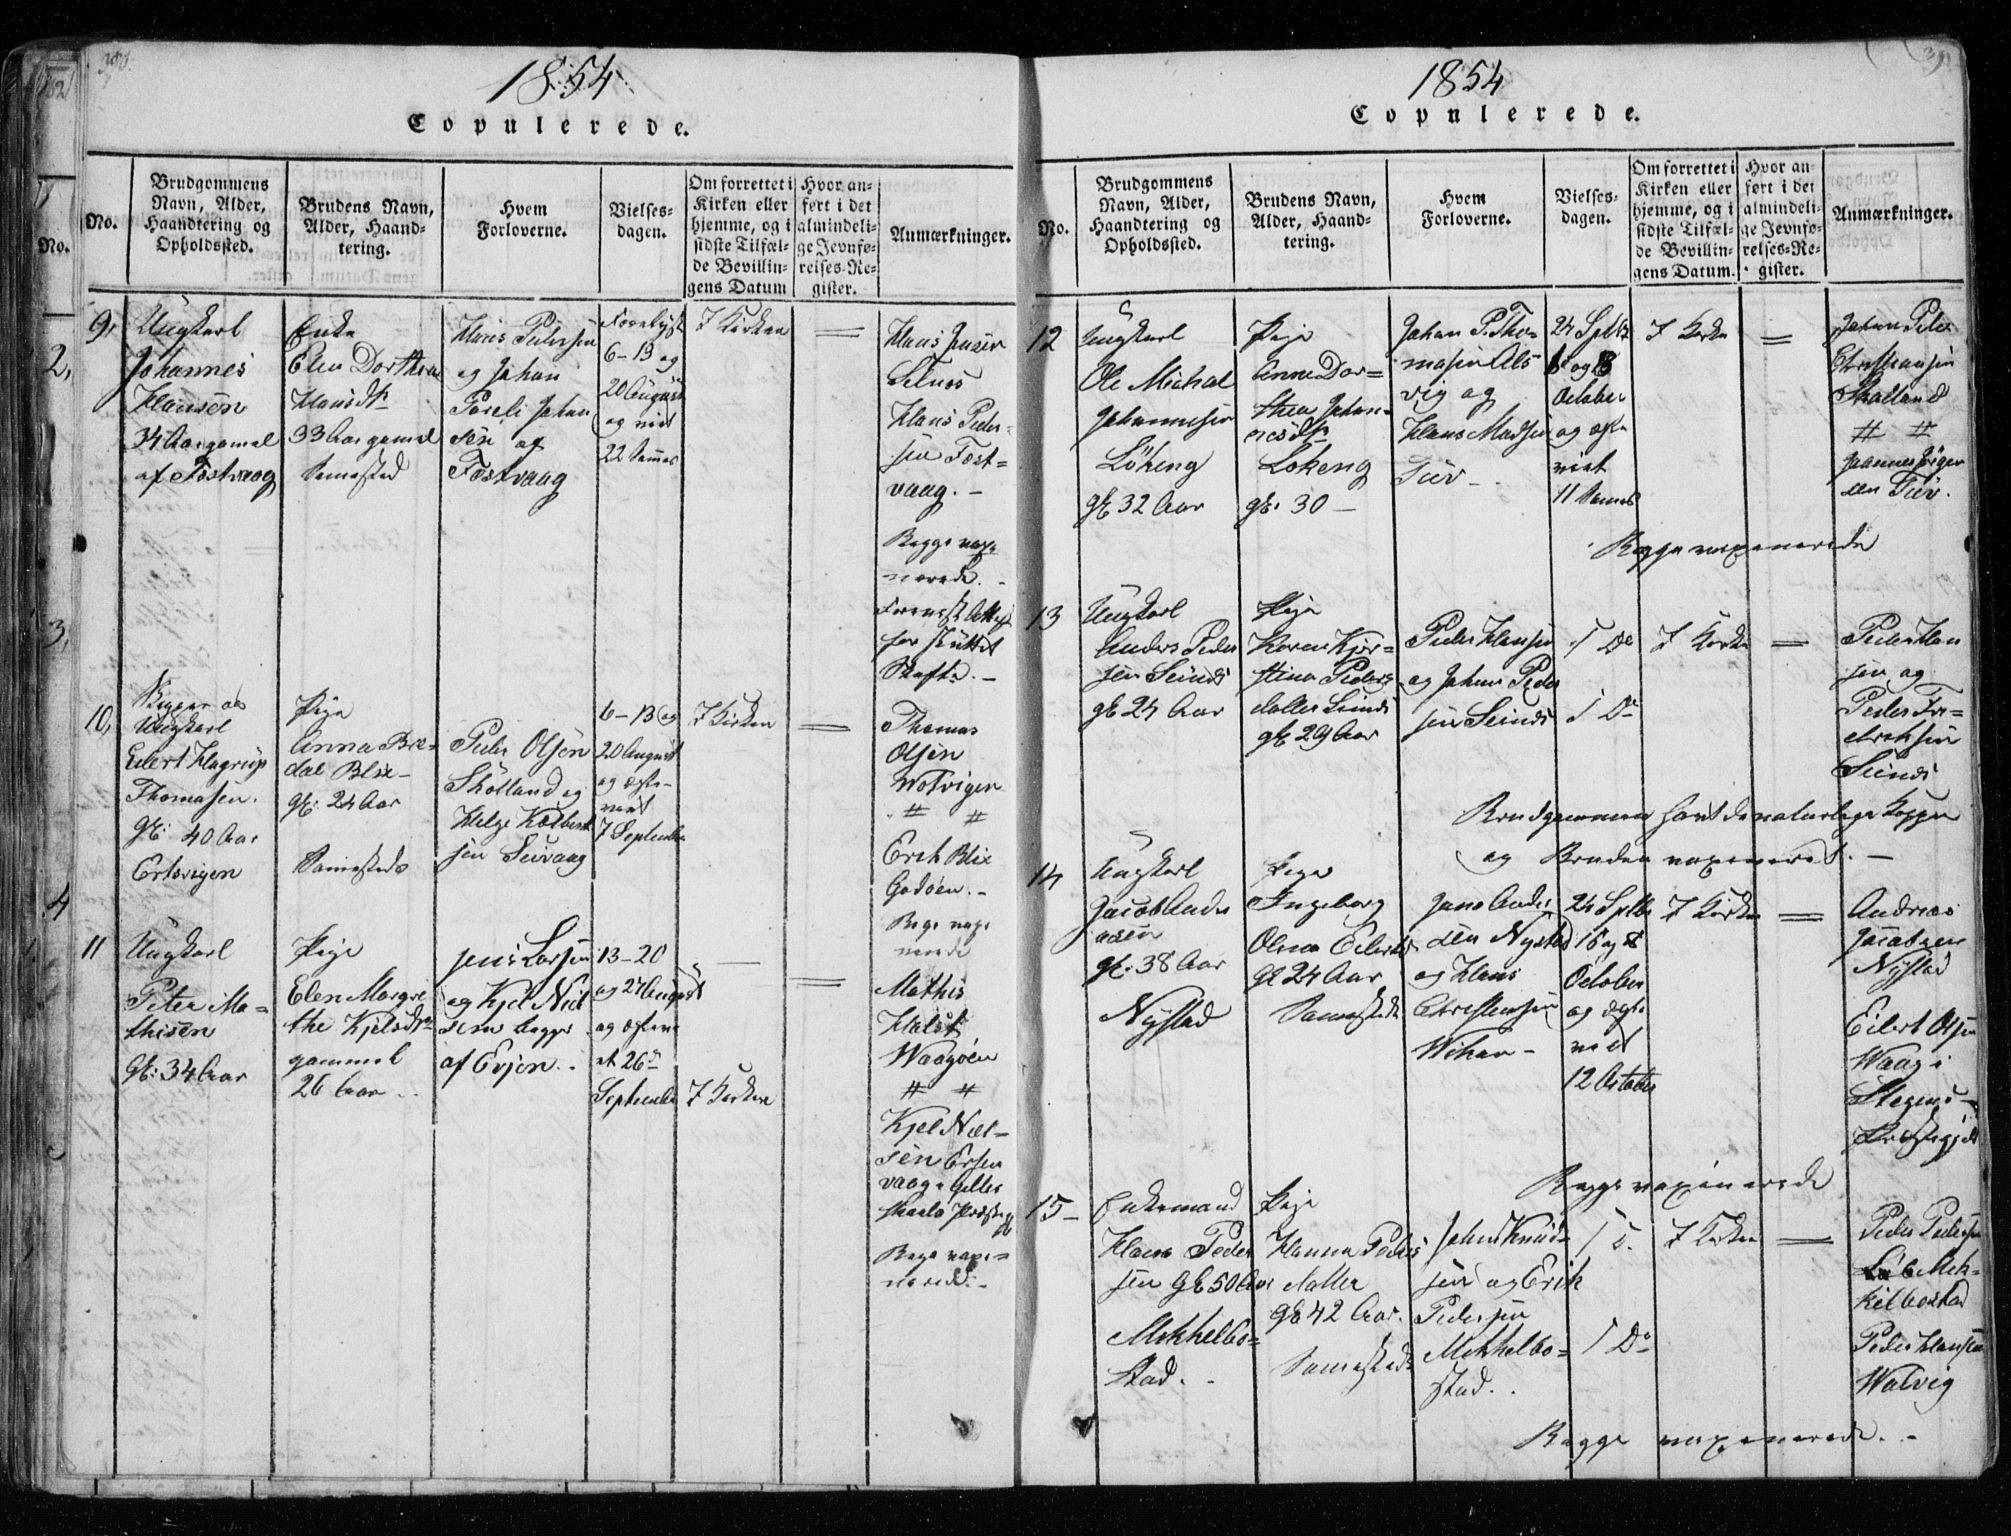 390.
1854
Copulerede.
No.
Brudgommens Navn, Alder, Haandtering og Opholdssted.
Brudens Navn, Alder, Haandtering.
Hvem Forloverne.
Vielsesdagen.
Om forrettet i Kirken eller hjemme, og i sidste Tilfælde Bevillingens Datum
Hvor anført i det almindelige Jevnførelses-Register.
Anmærkninger.
9,
Ungkarl
Johannes
Hansen
34 Aar gamel
af Festvaag
Enke
Elen Dorthea
Hansdtr
33 Aar gamel
Sammested
Hans Pedersen
og Johan
Johan
sen af
Festvaag
6-13 og
20 August
og viet
22 Sammes
I Kirken
Hans Jensen
Hans Peder-
sen Fest-
vaag. -
Begge vaxi-
nerede. -
for skiftet
10,
Ungkarl
Eilert Hagrup
Thomasen.
gl: 40 Aar
Pige
Anna Bre-
dal Blix-
gl: 24 Aar
Sammesteds
Peder Olsen
og
Helge
sen Seivaag
6-13 og
20 August
og æfte-
viet
7 September
I Kirken
Thomas
Olsen
Erik Blix
Godøen. -
Bege vaxi
nerede
11
Ungkarl
Peter Ma-
thisen
gl: 34 Aar
Pige
Elen Margre
the Kjelsdtr
gammel
26 Aar
Jens Larsen
og Kjel Niel
sen begge
af Evjen.
13-20
og 27 August
et 26de
September
I Kirken
Mathis
Waagøen
Kjel Niel-
sen
vaag Gilles
Bege vaxi-
nerede. -
391
1854
Copulerede.
No.
Brudgommens Navn, Alder, Haandtering og Opholdssted.
Brudens Navn, Alder, Haandtering.
Hvem Forloverne.
Vielsesdagen.
Om forrettet i Kirken eller hjemme, og i sidste Tilfælde Bevillingens Datum.
Hvor anført i det almindelige Jevnførelses-Register.
Anmærkninger.
12
Ungkarl
Ole Michal
Johannesen
Løkeng
gl 32 Aar
Pige
Anne Dor-
thea Johan-
nesdtr
Løkeng
gl: 30 -
Johan P. Tho-
masen Als
vig og
Hans Madsen
Tuv -
24 Septbr
October
og æfte
viet
11 Sammes
I Kirken
Johan Peter
Christiansen
Skålland
Johannes Jørgen
sen Tuv.
Begge vaxinerede
13
Ungkarl
Anders Peder
sen Seines
gl 24 Aar
Pige
Karen Kjer-
stina Peders
datter Seines
gl 29 Aar
Peder Hansen
og Johan Peder
sen Seines
I Do
I Do
I Kirken
Peder Han
sen og
Peder Fre-
driksen
Seines
Brudgommen havt de naturlige Kopper
og Bruden vaxineret. -
14
Ungkarl
Jacob Andre
asen
gl: 38 Aar
Nystad
Pige
Ingeborg
Olina Eilerts
gl 24 Aar
Sammesteds
Jens Ander
sen Nystad
og Hans
Christensen
24 Septbr
October
og æfte
viet
12 October
I Kirken
Andreas
Jacobsen
Nystad
Eilert Olsen
Waag i
Stegens
Præstegjeld
Begge vaxinerede
15-
Enkemand
Hans Peder
sen gl 50 Aar
Mikkelbo-
stad. -
Pige
Hanna Peders
datter
gl 42 Aar.
Sammesteds
Johan Knud-
sen og Erik
Pedersen
Mikkelbo-
stad.
I Do
I Kirken
Peder Pedersen
Mik-
kelbostad
Peder Hansen
Walvig
Begge vaxinerede. -
No.
2,
3,
4